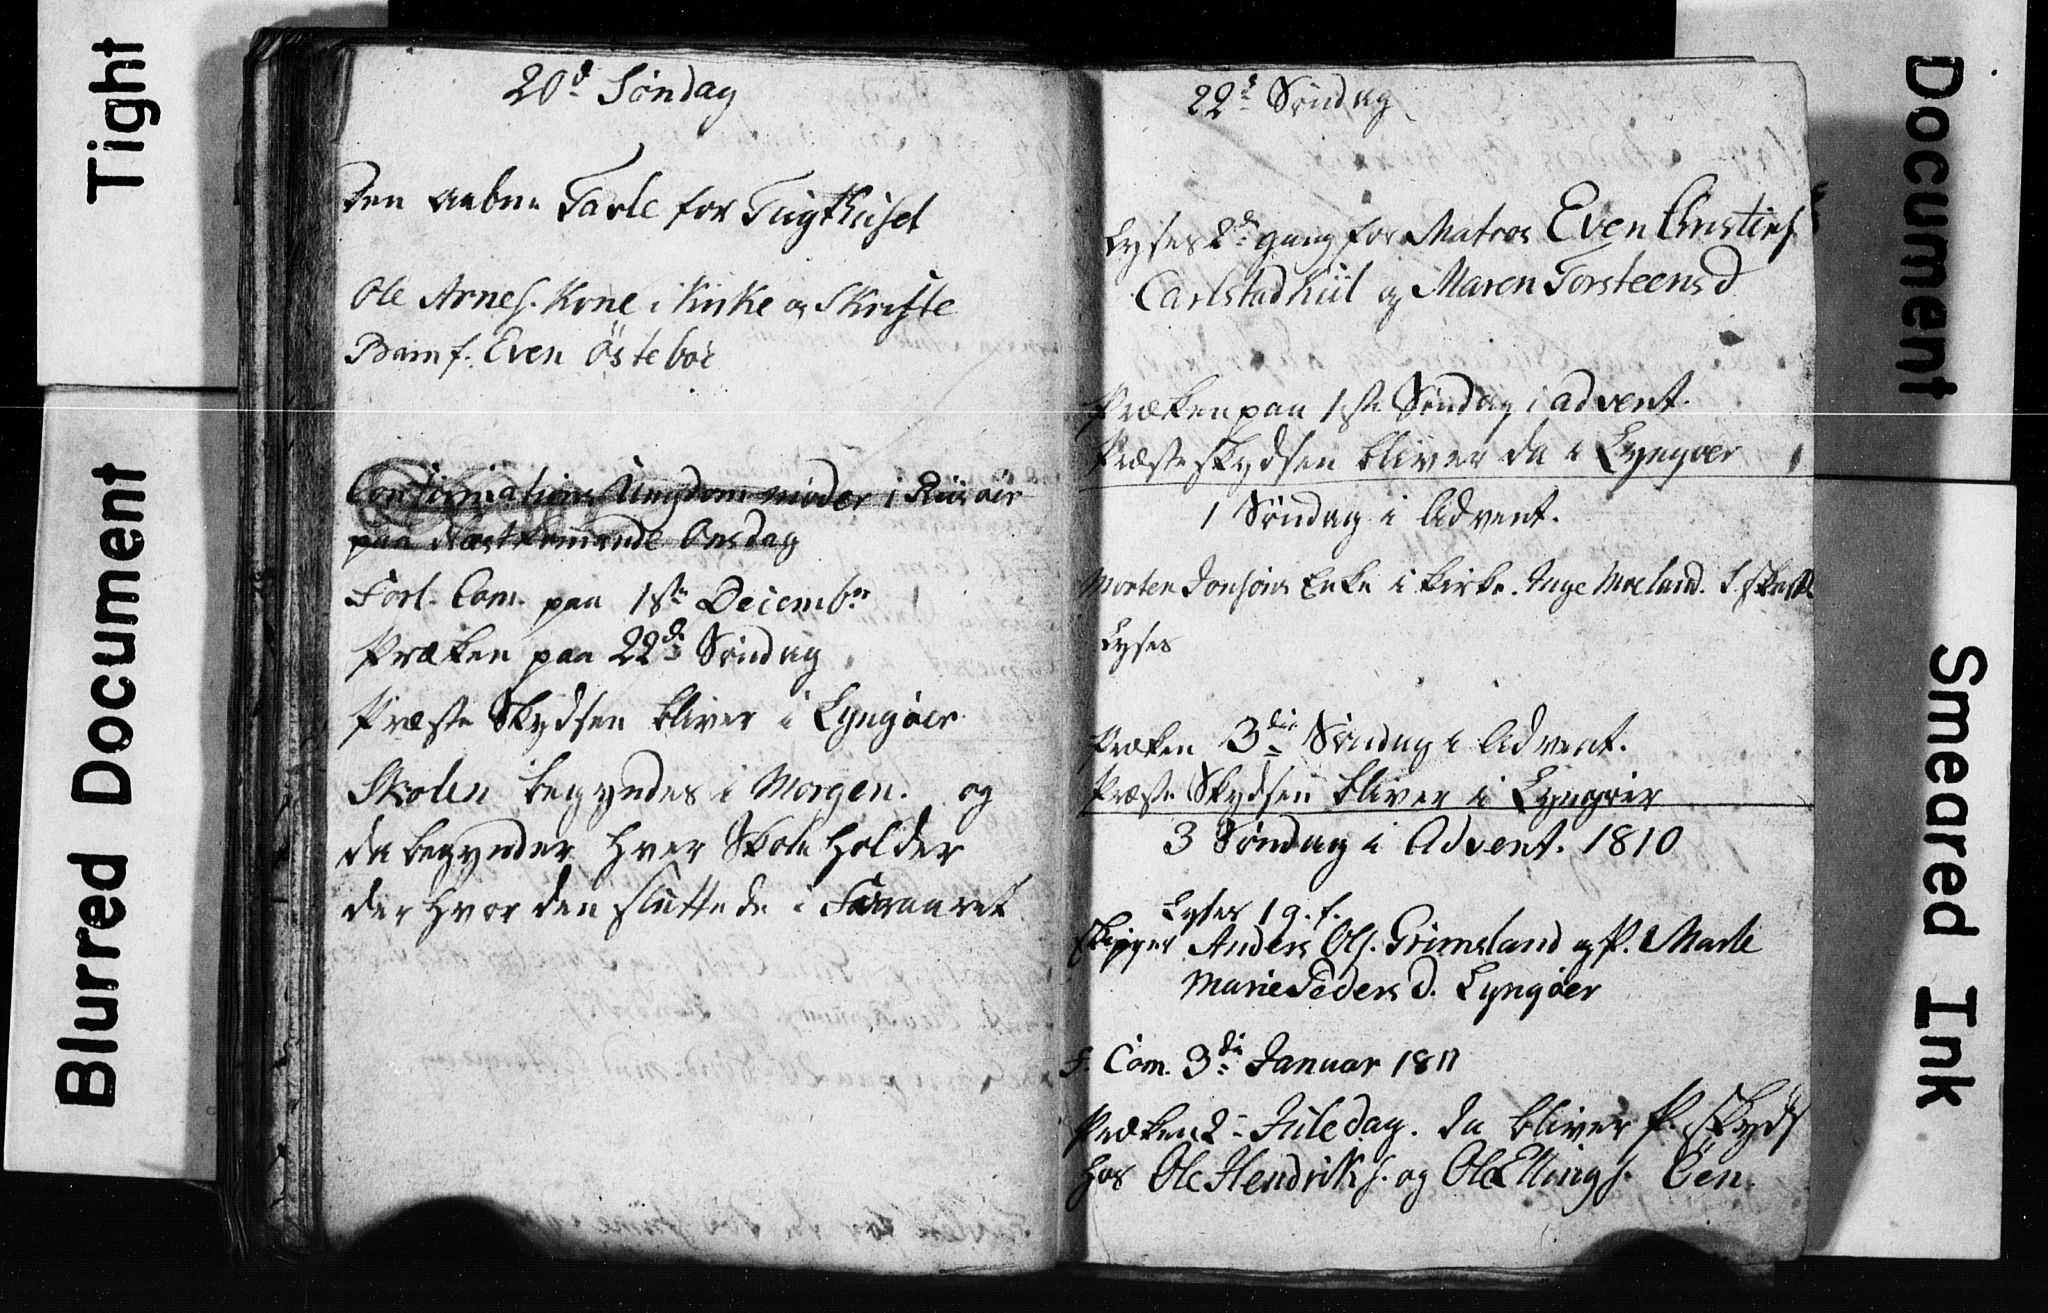 20d Søndag
Den aabne Tavle for Tugthuset
Ole Arnes. Kone i Kirke og Skrifte
Barn f. Even Östeböe
Confirmations Ungdom möder i Riisöer
paa Næstkomende Onsdag
Forl. Com. paa 1ste Decembr
Præken paa 22de Søndag
Præste Skydsen bliver i Lyngöer
Skolen begyndes i Morgen. og
da begynder hver Skoleholder
der hvor den sluttede i Foraaret
22de Søndag
Lyses 2de gang for Matros Even Christens
Carlstadkiil og Maren Torsteensd
Præken paa 1ste Søndag i advent.
Præsteskydsen bliver da i Lyngöer
1 Søndag i Advent.
Morten Jonsöns Enke i Kirke. Inge Moeland. S. skrifte
Lyses
Præken 3die Søndag i Advent.
Præste Skydsen bliver i Lyngöer
3 Søndag i Advent. 1810
Lyses 1 g. f.
Skipper Anders Ols. Grimsland og P. Marte
Marie Peders D. Lyngöer
F. Com. 3die Januar 1811
Præken 2 Juledag. da bliver P. Skyds
hos Ole Hendriks. og Ole Ellings. Öen.
Tight
Blurred Document
Document
Smeared Ink